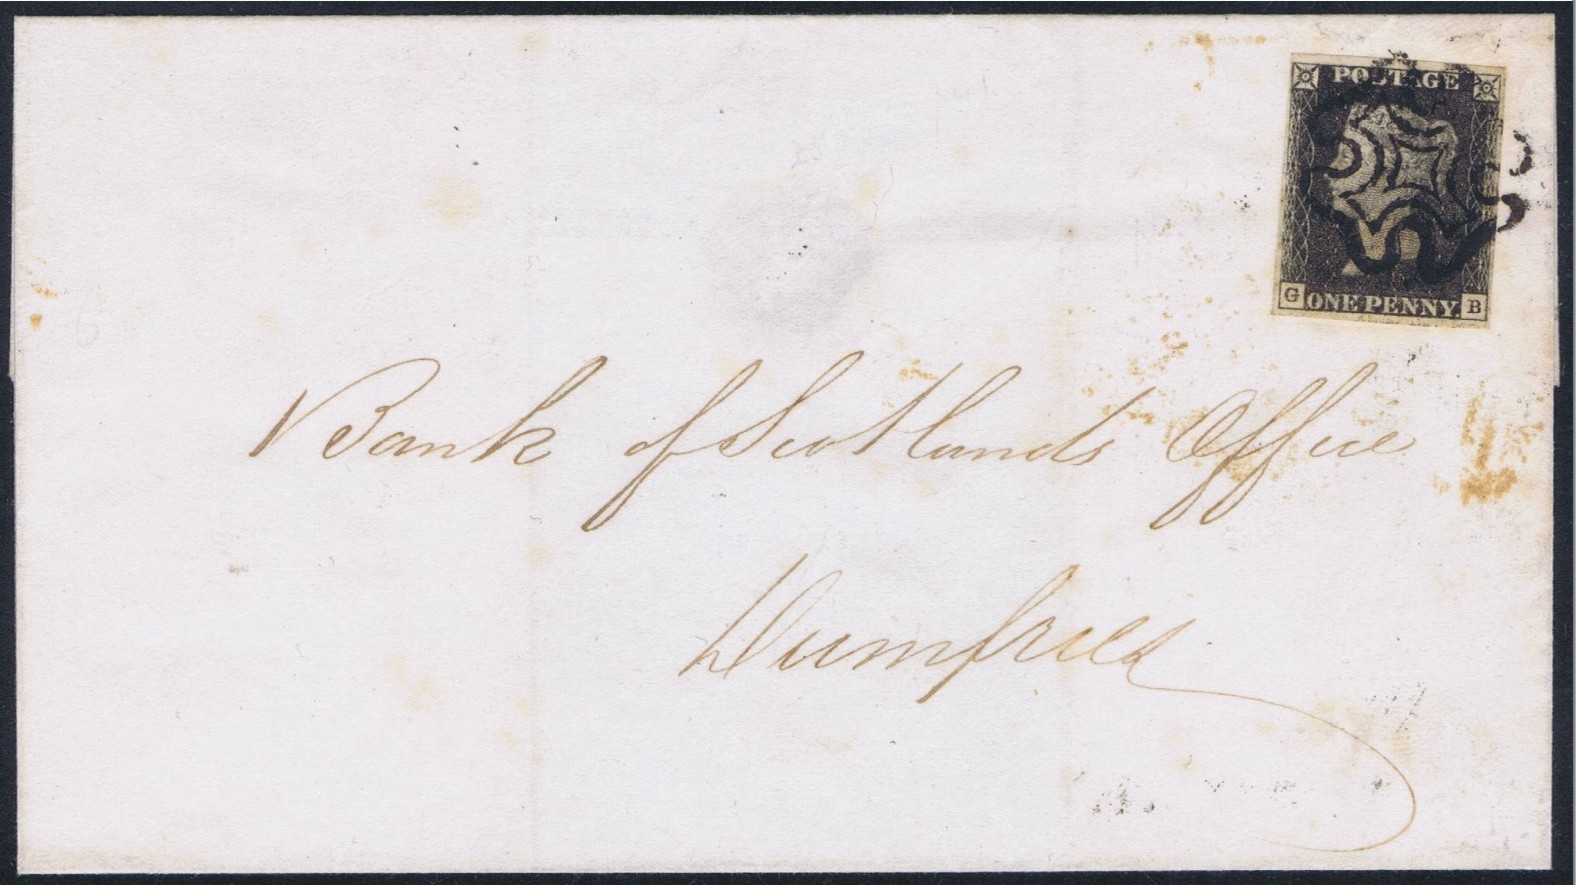 POSTAGE
G ONE PENNY. B
Bank of Scotlands Office
Dumfries